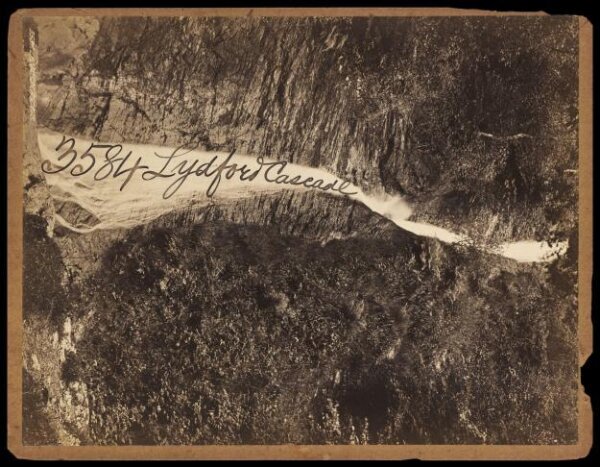 3584 Lydford Cascade